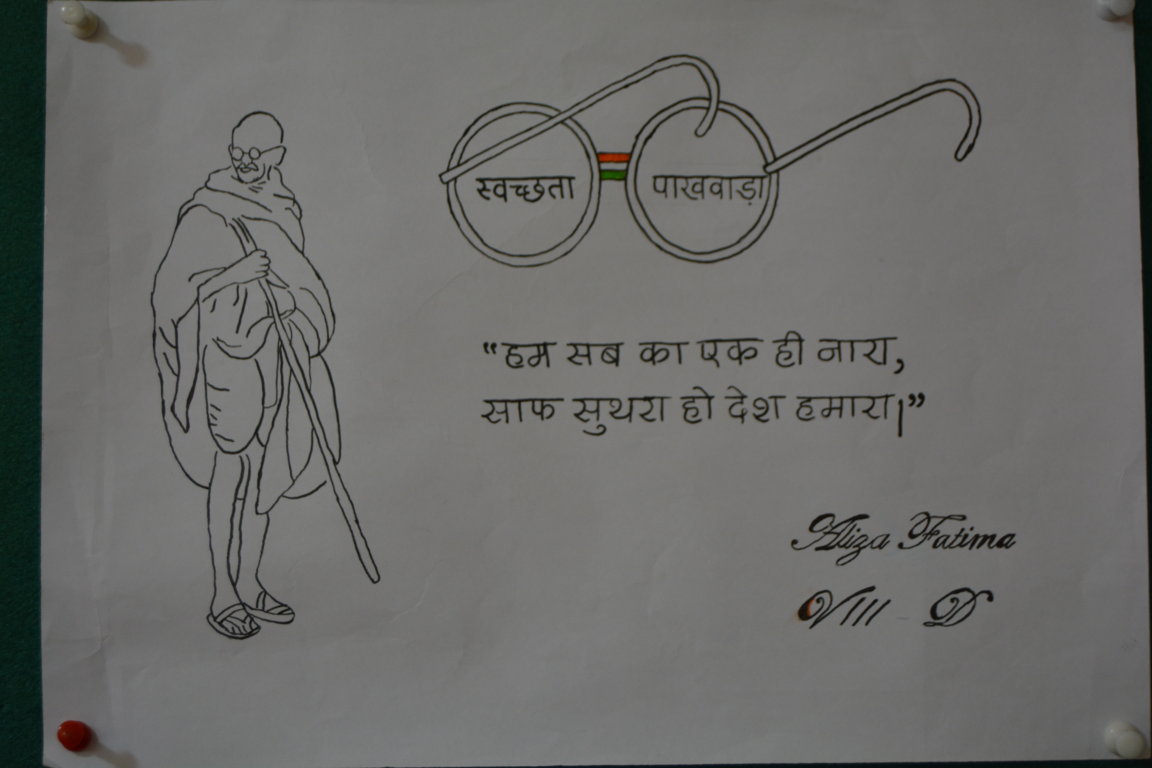 स्वच्छता पाखवाड़ा
“हम सब का एक ही नारा,
साफ सुथरा हो देश हमारा।”
Aliza Fatima
VIII - D